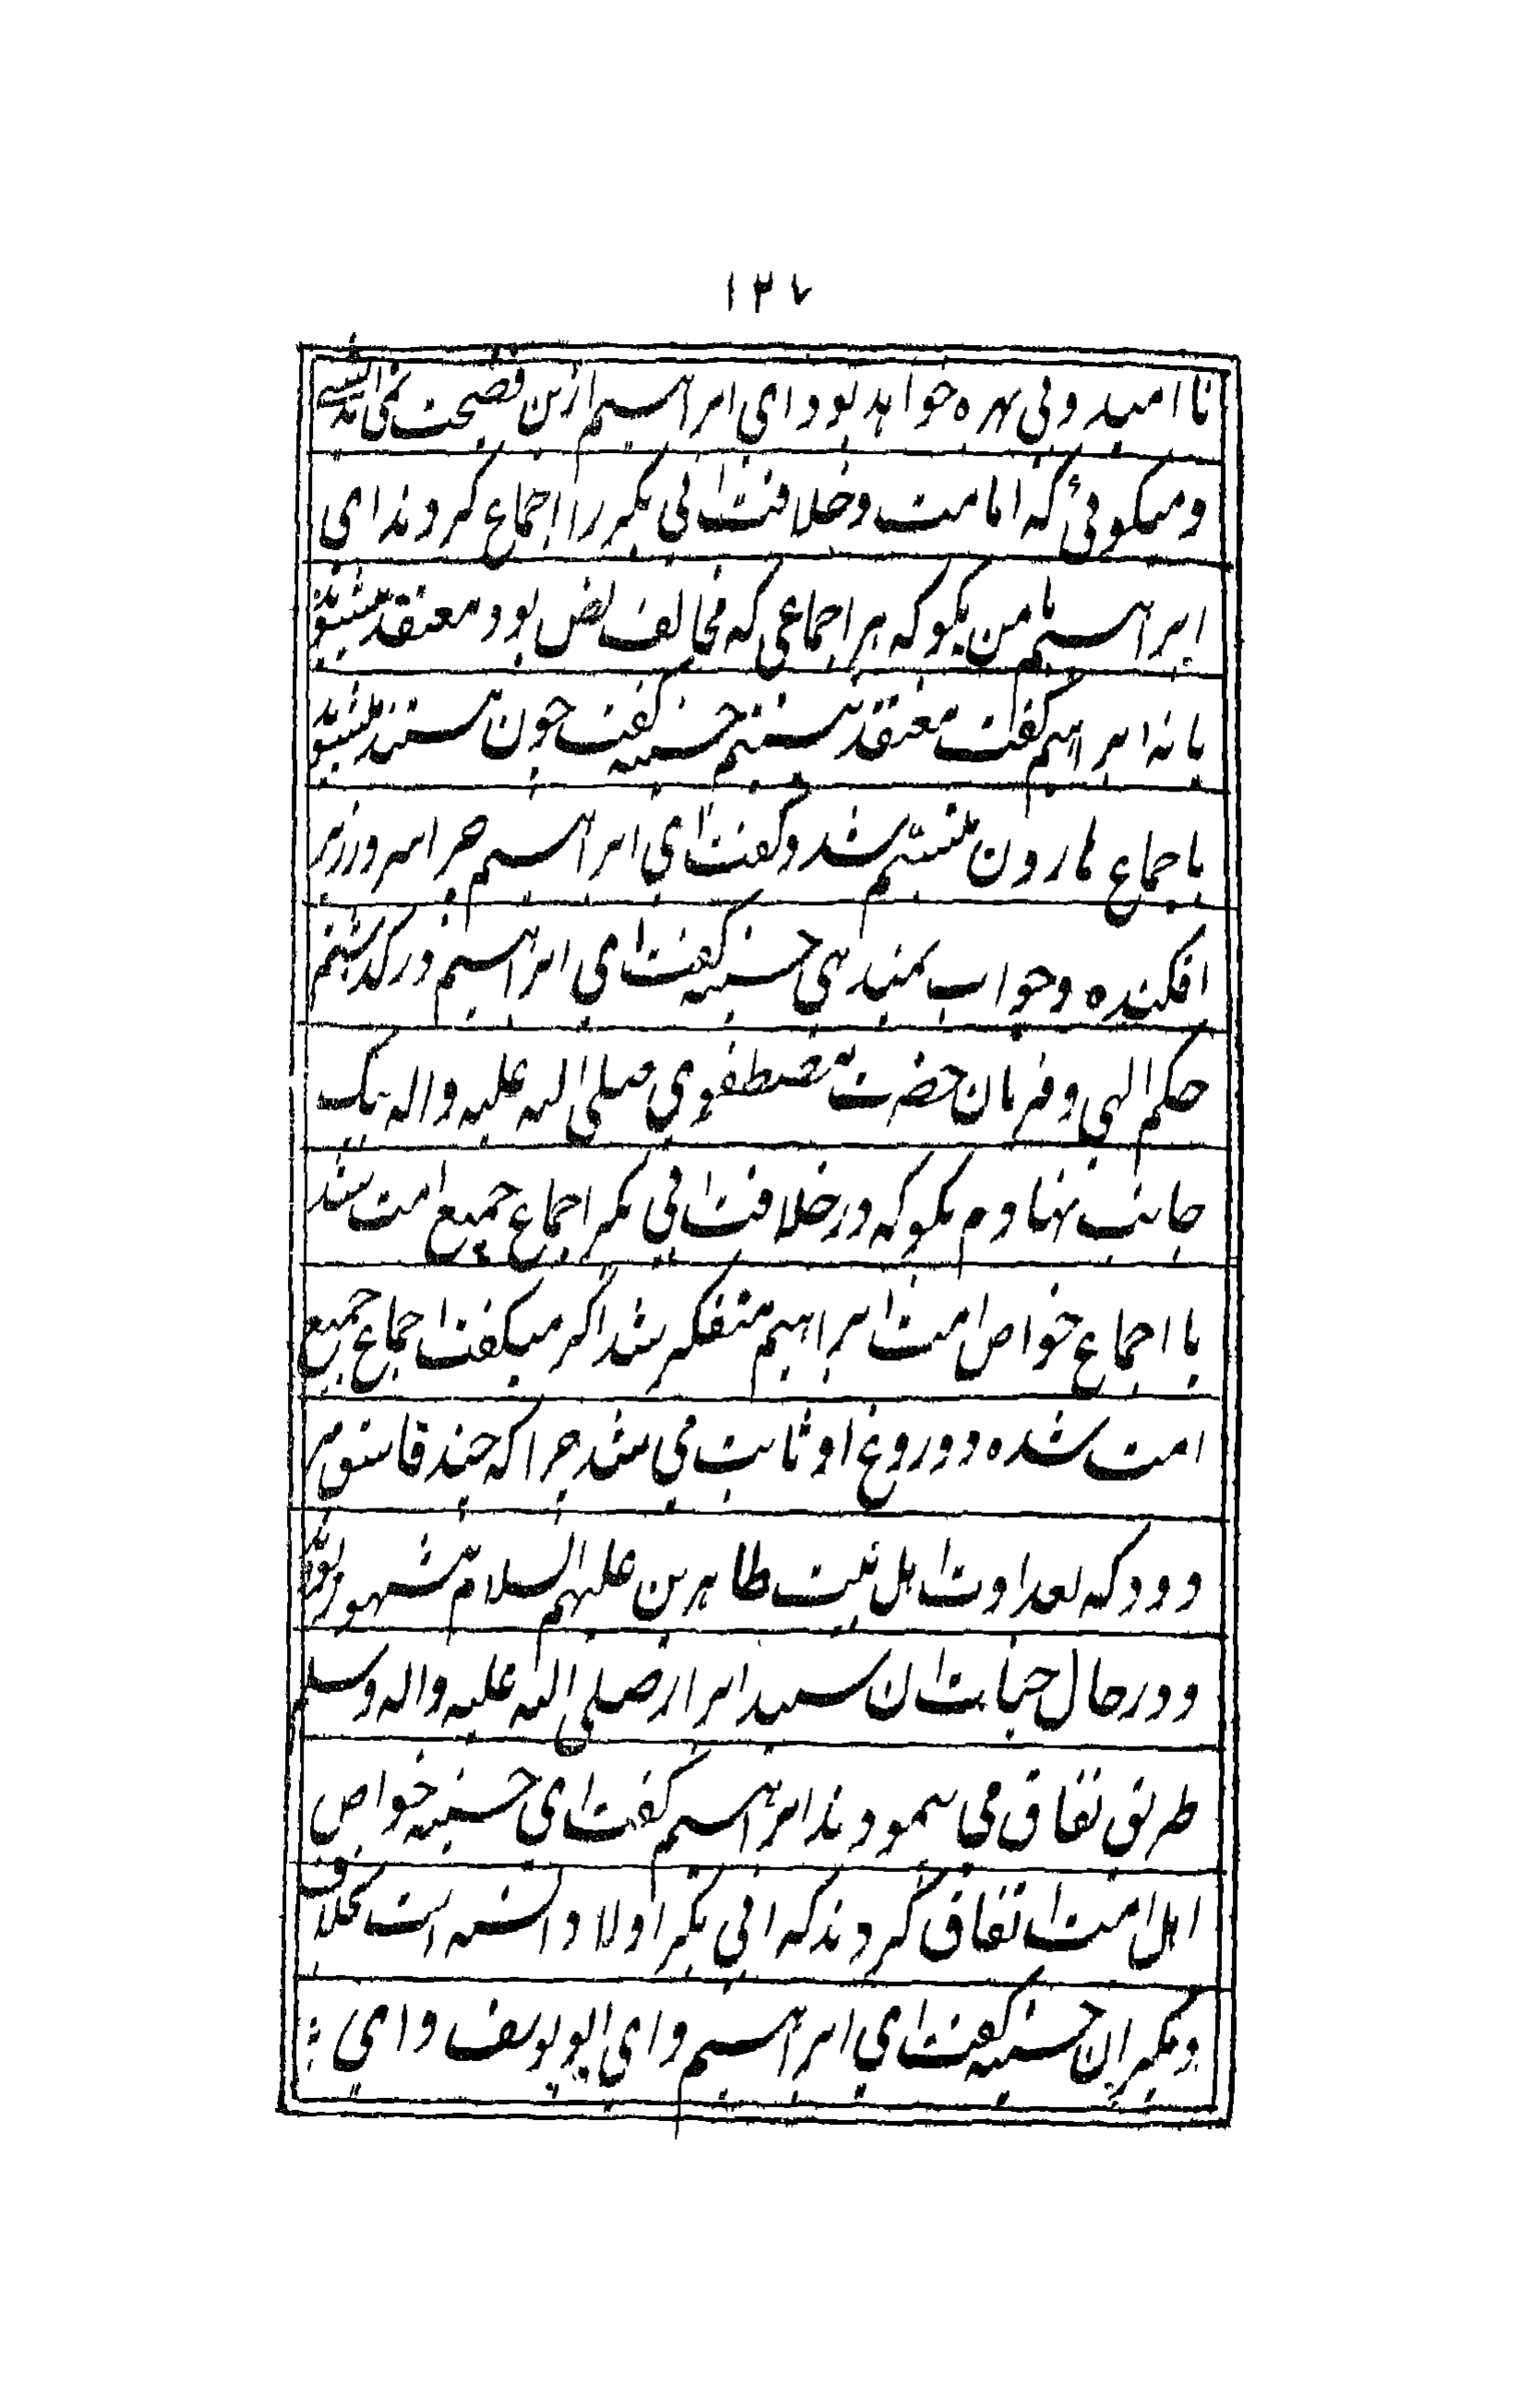 ۱۲۷
نا امید و بی بهره خواهد بود ای ابراهیم ازین فضیحت نمی اندیشی
و میکوئی که امامت و خلافت ابی بکر را اجماع کردند ای
ابراهیم با من بکو که هر اجماعی که مخالف نص بود معتقد میشوید
یا نه ابراهیم کفت معتقد نیستیم حسنیه کفت چون مستند میشوید
باجماع هارون متبسّم شد و کفت ای ابراهیم چرا سر در زیر
افکنده و جواب نمیدهی حسنیه کفت ای ابراهیم در کذشتیم
حکم الهی و فرمان حضرت مصطفوی صلی الله علیه واله یک
جانب نهادم بکو که در خلافت ابی بکر اجماع جمیع امت شد
یا اجماع خواص امت ابراهیم متفکر شد اکر میکفت اجماع جمیع
امت شده دوروغ او ثابت می شد چرا که چند فاسق مر
دود که بعداوت اهل بیت طاهرین علیهم السلام مشهور بودند
و در حال حیات ان سید ابرار صلی الله علیه واله وسلم
طریق نفاق می پیمودند ابراهیم کفت ای حسنیه خواص
اهل امت اتفاق کردند که ابی بکر اولا دانسته است بخلاف
دیکران حسنیه کفت ای ابراهیم وای ابو یوسف وای